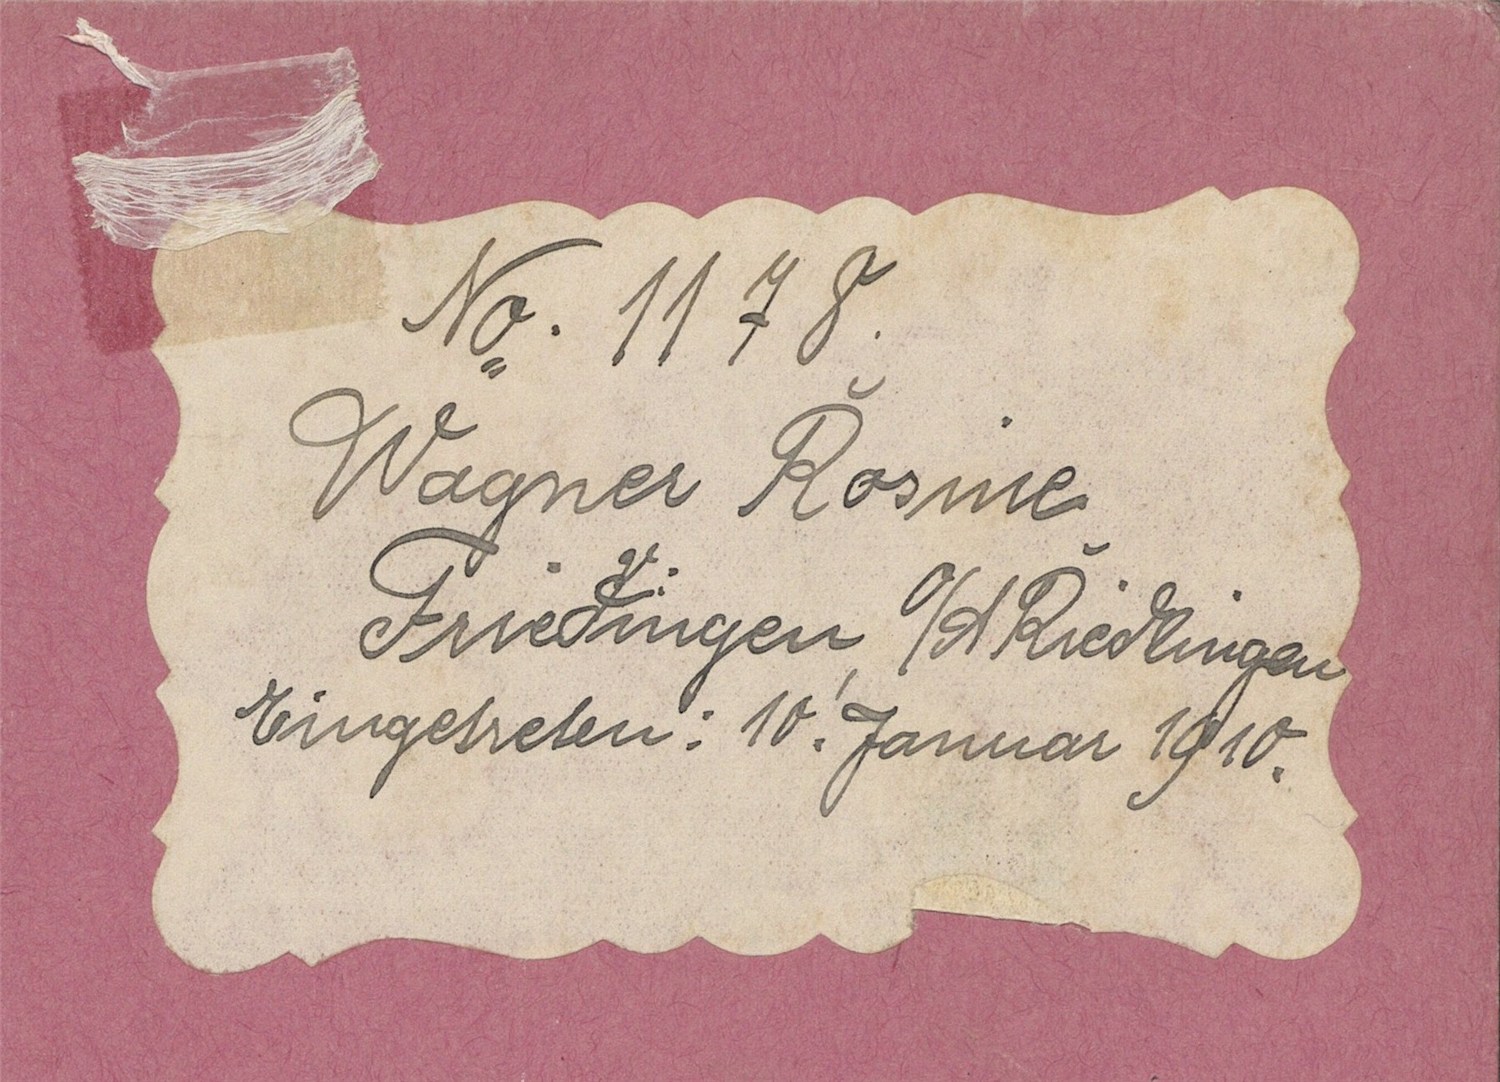 No. 1178.
Wagner Rosine
Friedingen, O/A Riedlingen
Eingetreten: 10. Januar 1910.